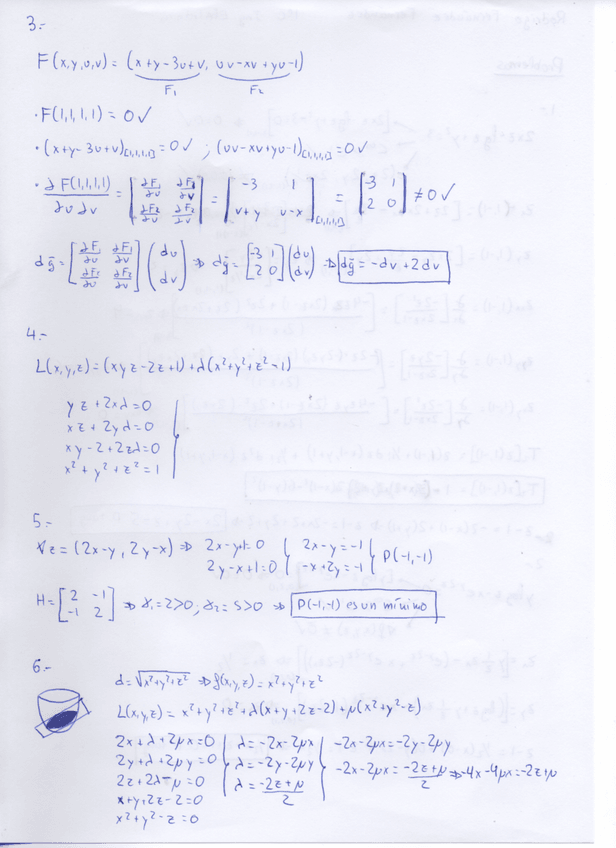 3.-
F(x,y,u,v) = (x+y-3u+v, uv-xv+yu-1)
F₁ F₂
· F(1,1,1,1) = 0 ✓
· (x+y-3u+v)[1,1,1,1] = 0 ✓ ; (uv-xv+yu-1)[1,1,1,1] = 0 ✓
· ∂F(1,1,1,1)/∂u∂v = [∂F₁/∂u ∂F₁/∂v; ∂F₂/∂u ∂F₂/∂v] = [-3 1; v+y u-x][1,1,1,1] = [-3 1; 2 0] ≠ 0 ✓
dg̅ = [∂F₁/∂u ∂F₁/∂v; ∂F₂/∂u ∂F₂/∂v] (du; dv) ⇒ dg̅ = [-3 1; 2 0] (du; dv) ⇒ dg̅ = -du+2dv
4.-
L(x,y,z) = (xyz-2z+1) + λ(x²+y²+z²-1)
yz + 2xλ = 0
xz + 2yλ = 0
xy - 2 + 2zλ = 0
x² + y² + z² = 1
5.-
∇z = (2x-y, 2y-x) ⇒ 2x-y+1=0 { 2x-y = -1 { P(-1,-1)
2y-x+1=0 { -x+2y = -1
H = [2 -1; -1 2] ⇒ γ₁=2>0; γ₂=5>0 ⇒ P(-1,-1) es un mínimo
6.-
d = √x²+y²+z² ⇒ f(x,y,z) = x²+y²+z²
L(x,y,z) = x²+y²+z²+λ(x+y+2z-2)+μ(x²+y²-z)
2x+λ+2μx=0 | λ=-2x-2μx | -2x-2μx=-2y-2μy
2y+λ+2μy=0 | λ=-2y-2μy | -2x-2μx = -2z+μ/2 ⇒ -4x-4μx=-2z+μ
2z+2λ-μ=0 | λ = -2z+μ/2
x+y+2z-2=0
x²+y²-z=0